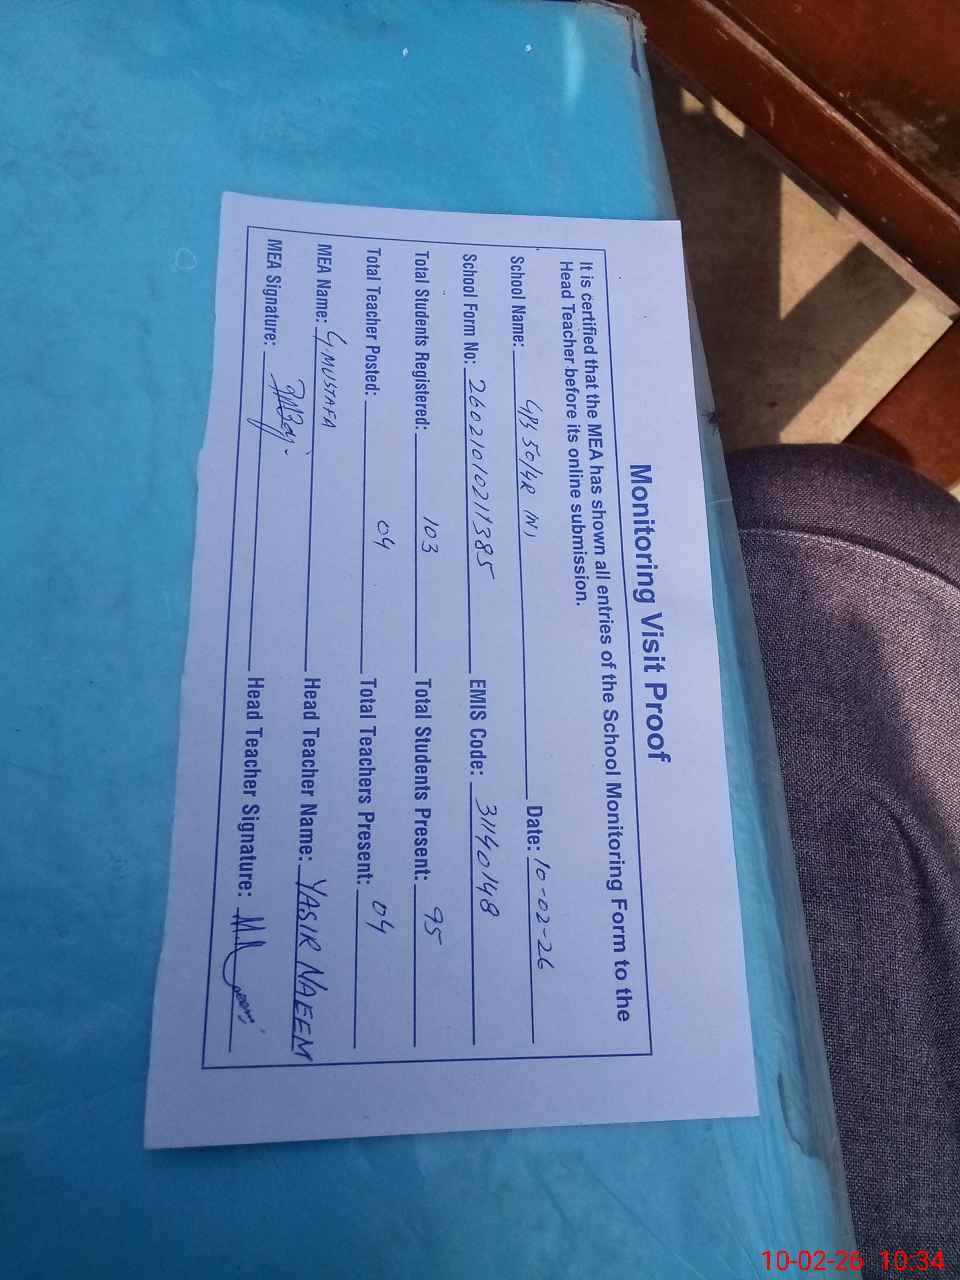 Monitoring Visit Proof
It is certified that the MEA has shown all entries of the School Monitoring Form to the
Head Teacher before its online submission.
School Name: GPS 50/4R (N) Date: 10-02-26
School Form No: 2602101021385 EMIS Code: 31140148
Total Students Registered: 103 Total Students Present: 95
Total Teacher Posted: 04 Total Teachers Present: 04
MEA Name: G. MUSTAFA Head Teacher Name: YASIR NAEEM
MEA Signature: Head Teacher Signature:
10-02-26 10:34